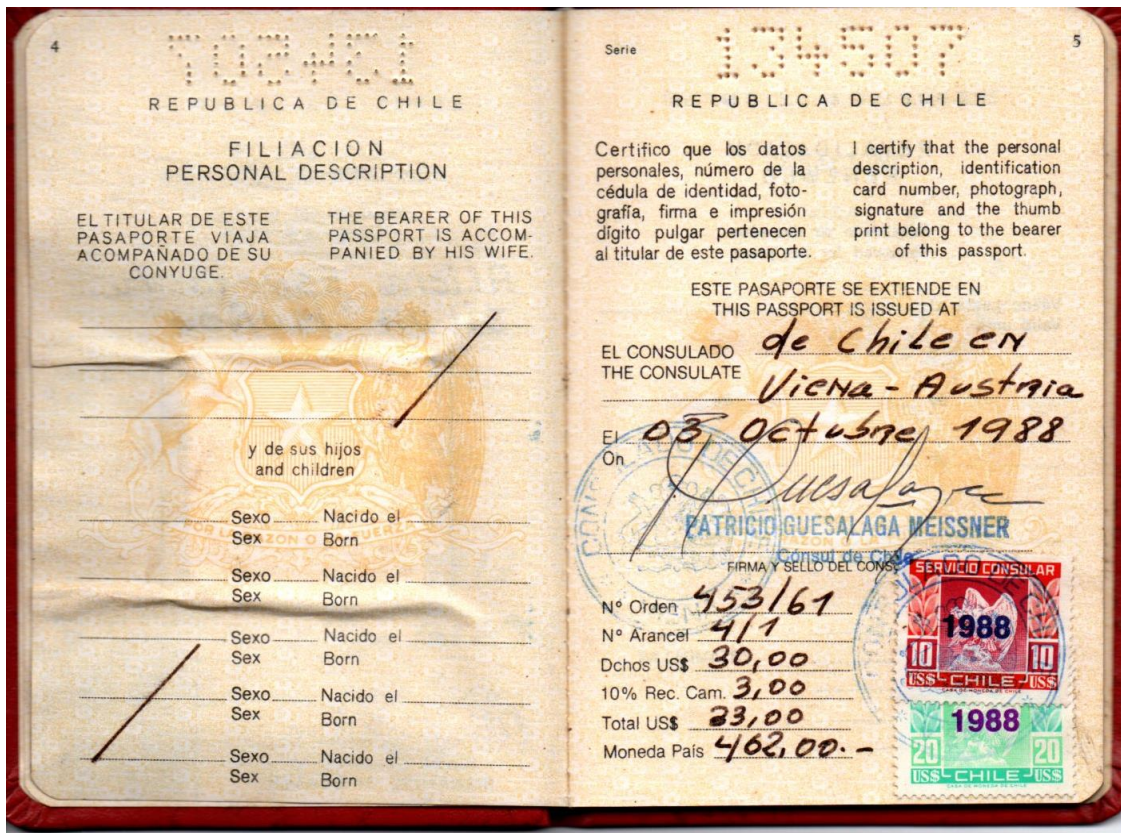 4
134507
REPUBLICA DE CHILE
FILIACION
PERSONAL DESCRIPTION
EL TITULAR DE ESTE
PASAPORTE VIAJA
ACOMPAÑADO DE SU
CONYUGE.
THE BEARER OF THIS
PASSPORT IS ACCOM-
PANIED BY HIS WIFE.
y de sus hijos
and children
Sexo Nacido el
Sex Born
Sexo Nacido el
Sex Born
Sexo Nacido el
Sex Born
Sexo Nacido el
Sex Born
Sexo Nacido el
Sex Born
Serie 134507
5
REPUBLICA DE CHILE
Certifico que los datos
personales, número de la
cédula de identidad, foto-
grafía, firma e impresión
dígito pulgar pertenecen
al titular de este pasaporte.
I certify that the personal
description, identification
card number, photograph,
signature and the thumb
print belong to the bearer
of this passport.
ESTE PASAPORTE SE EXTIENDE EN
THIS PASSPORT IS ISSUED AT
EL CONSULADO de Chile en
THE CONSULATE Viena - Austria
El 03, Octubre, 1988
On
PATRICIO GUESALAGA MEISSNER
Cónsul de Chile
FIRMA Y SELLO DEL CONS
Nº Orden 453/61
Nº Arancel 4/1
Dchos US$ 30,00
10% Rec. Cam. 3,00
Total US$ 33,00
Moneda País 462,00.-
SERVICIO CONSULAR
1988
10 10
US$ CHILE US$
CASA DE MONEDA DE CHILE
1988
20 20
US$ CHILE US$
CASA DE MONEDA DE CHILE